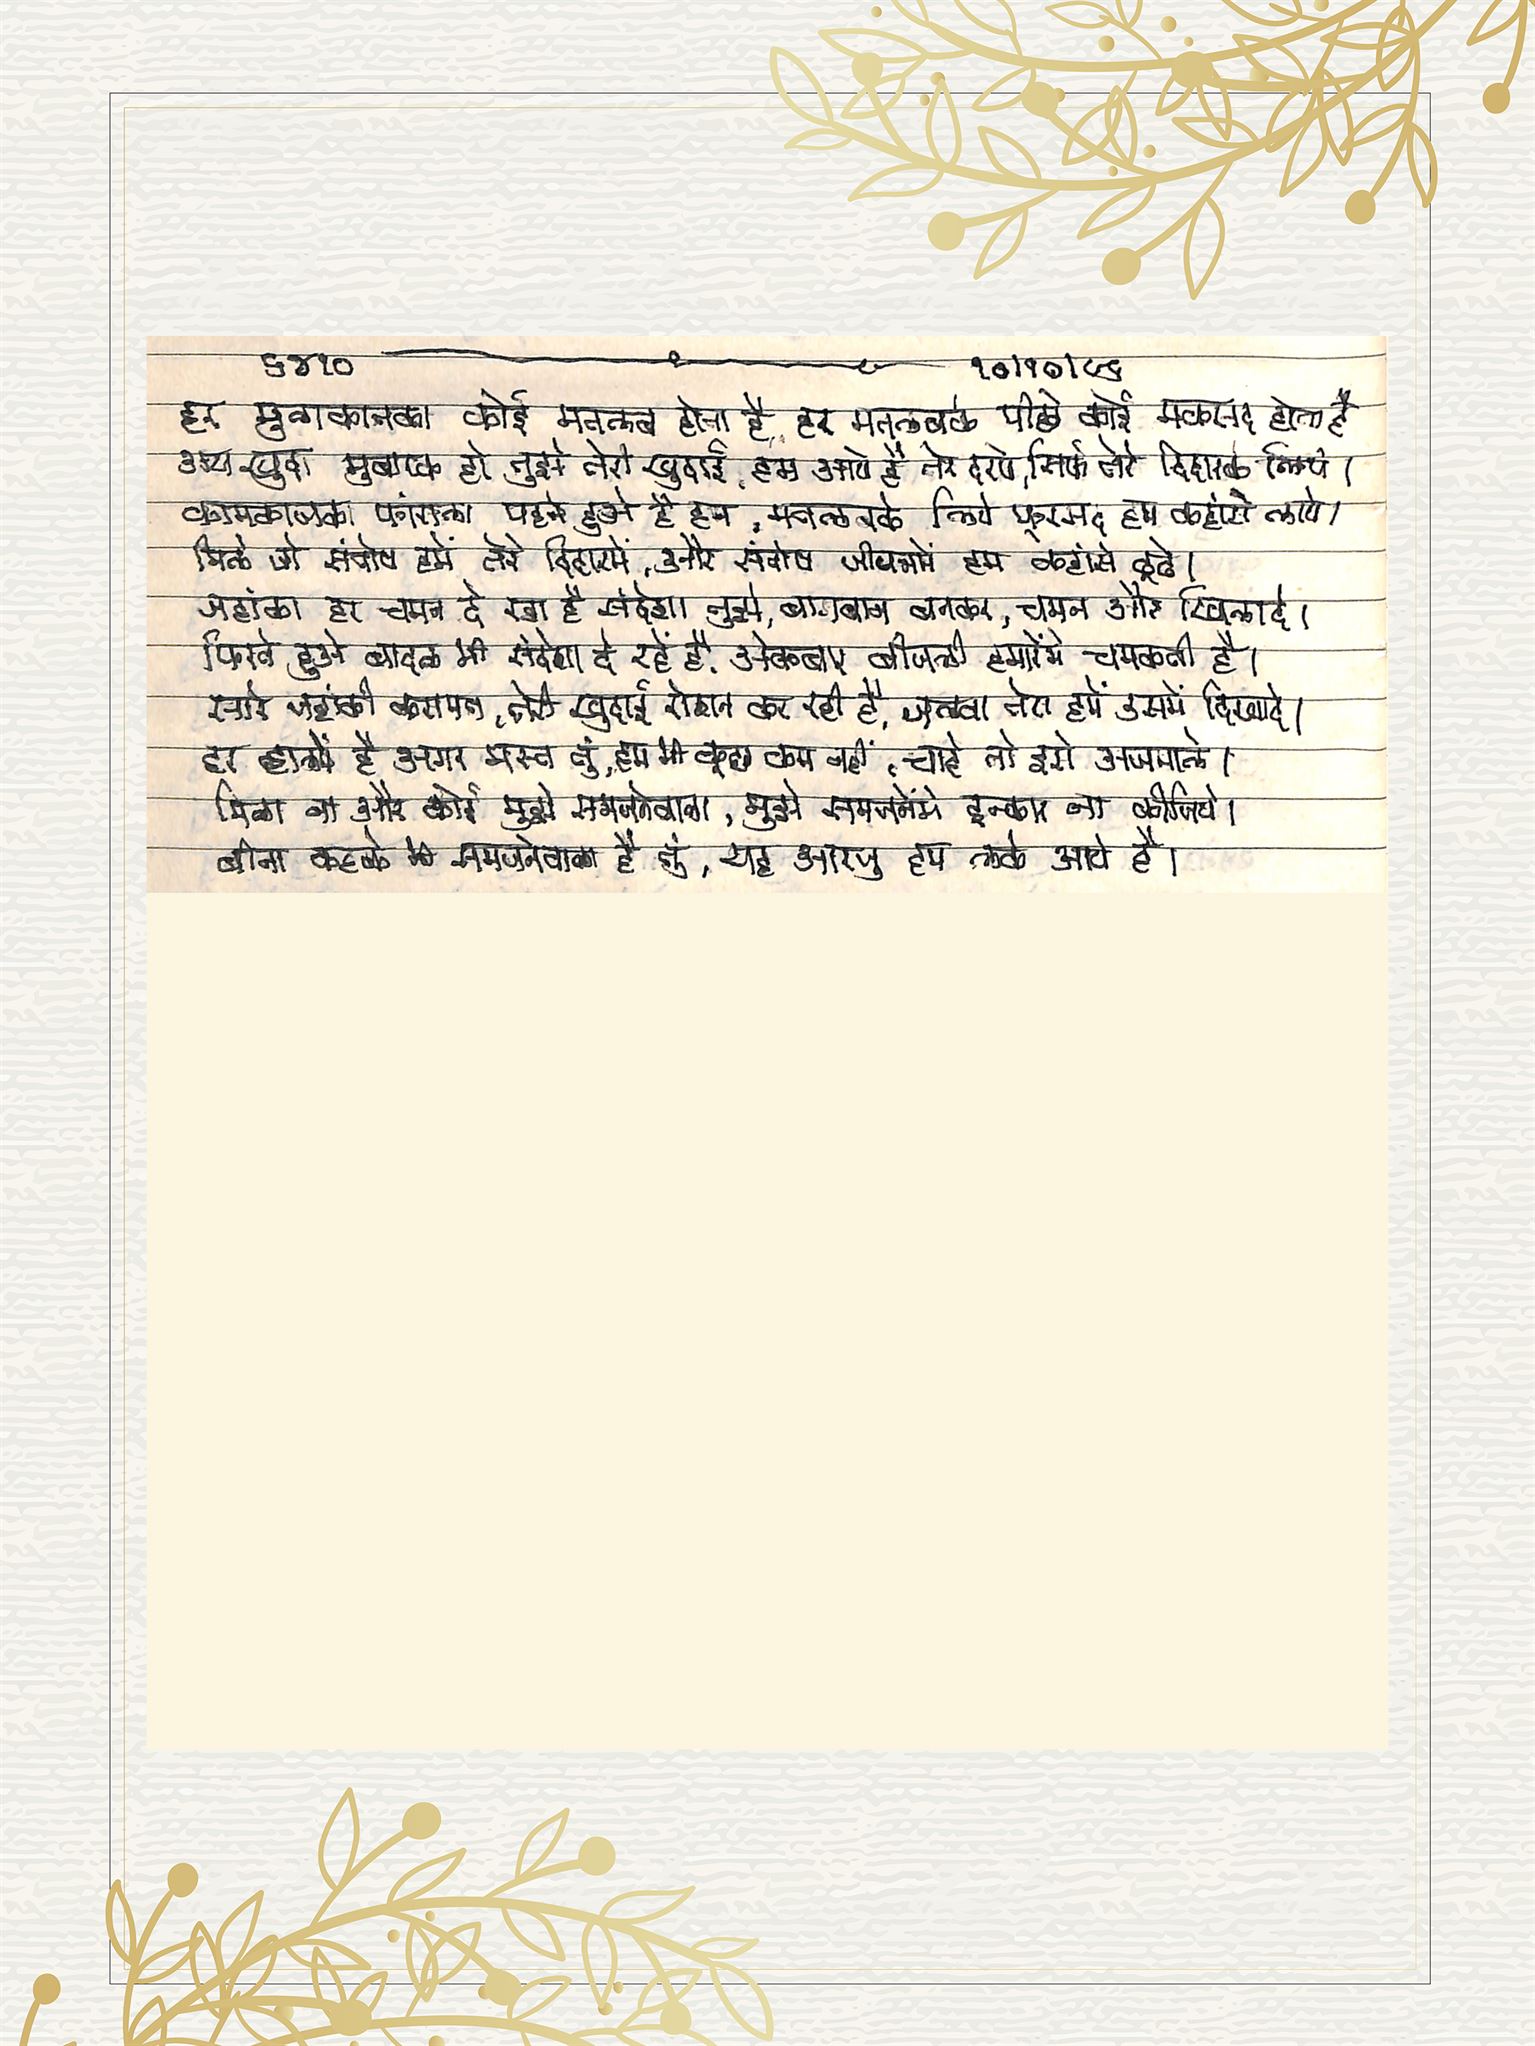 ६४१० १०।१०।८६
हर मुलाकातका कोई मतलब होता है, हर मतलबके पीछे कोई मकसद होता है
अय खुदा मुबारक हो तुझे तेरी खुदाई, हम आये है तेरे दरपे, सिर्फ तेरे दिदारके लिये।
कामकाजका फांसला पहने हुओ है हम, मतलबके लिये फुरसद हम कहांसे लाये।
मिले जो संतोष हमें तेरे दिदारमें, और संतोष जीवनमें हम कहांसे ढूंढे।
जहांका हर चमन दे रहा है संदेशा तुझे, बागबान बनकर, चमन और खिलादे।
फिरते हुओ बादल भी संदेशा दे रहें है, ओकबार बीजली हमारेंमें चमकती है।
सारे जहांकी करामत, तेरी खुदाई रोशन कर रही है, जलवा तेरा हमें उसमें दिखादे।
हर हालमें है अगर मस्त तुं, हम भी कुछ कम नहीं, चाहे तो इसे अजमाले।
मिला ना और कोई मुझे समजनेवाला, मुझे समजनेंमें इन्कार ना कीजिये।
बीना कहके भी समजनेवाला है तुं, यह आरजु हम लेके आये है।